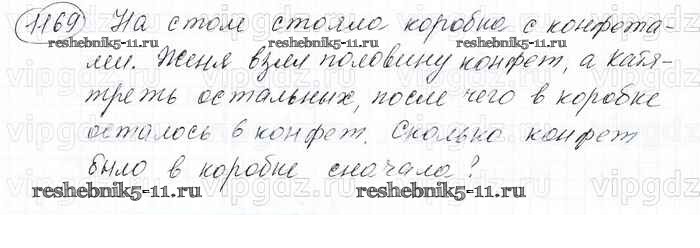 1169) На столе стояла коробка с конфета-
reshebnik5-11.ru reshebnik5-11.ru
ми. Женя взял половину конфет, а Катя-
треть остальных, после чего в коробке
vipgdz.ru vipgdz.ru vipgdz.ru
осталось 6 конфет. Сколько конфет
было в коробке сначала?
reshebnik5-11.ru reshebnik5-11.ru